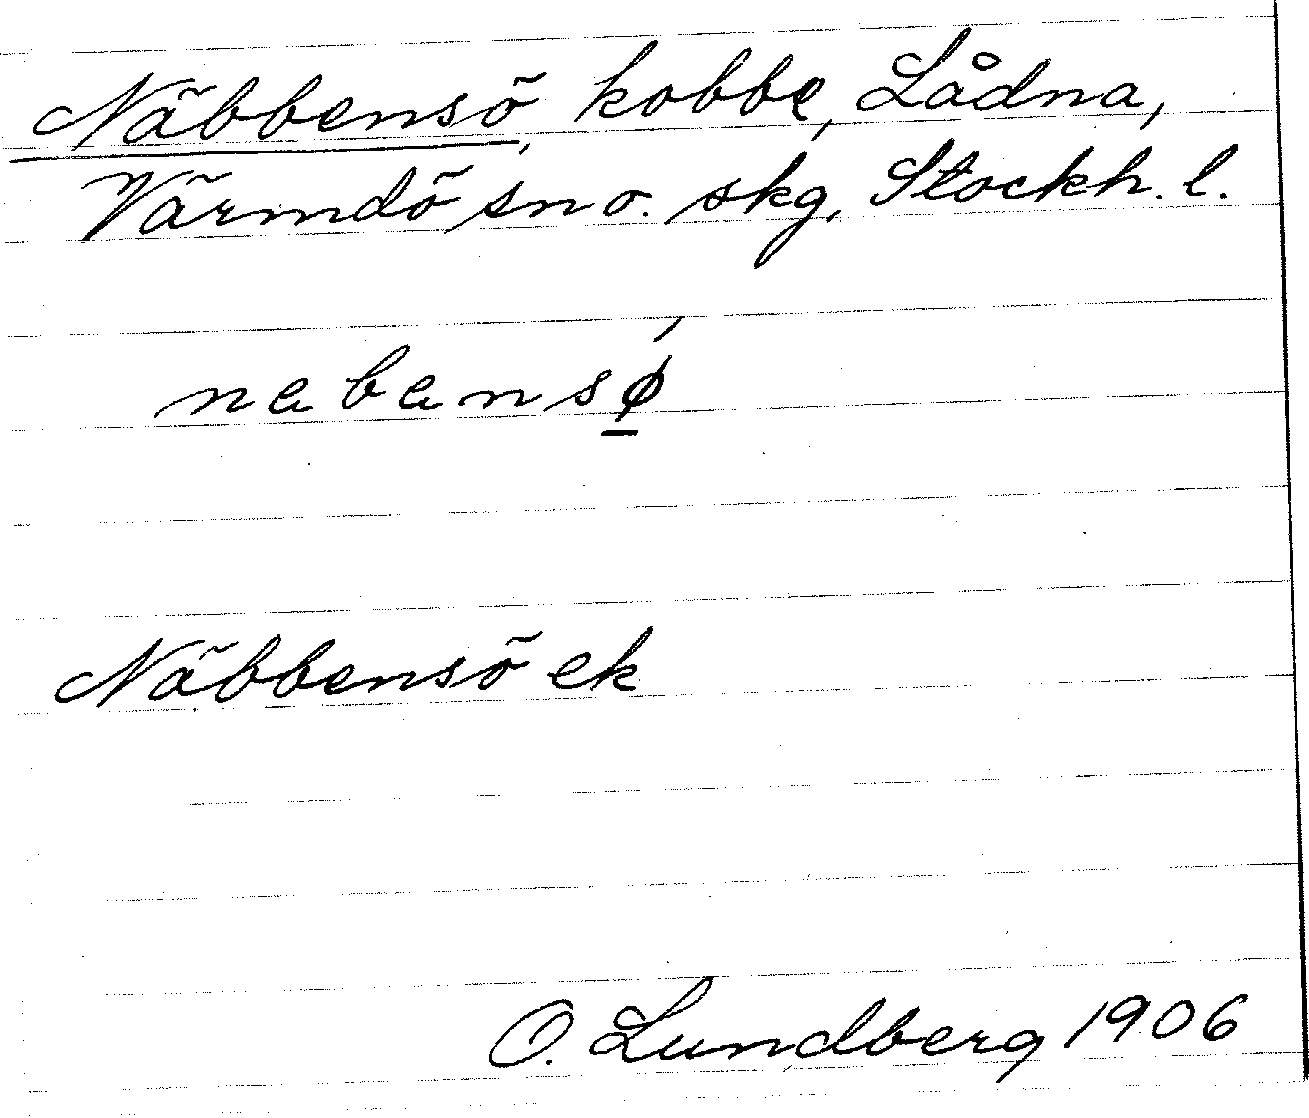 Näbbensö, kobbe, Lådna,
Värmdö sn o. skg, Stockh. l.
nabansǿ
Näbbensö ek
O. Lundberg 1906